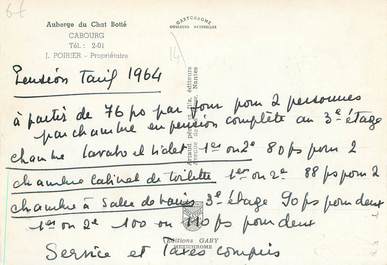 67
Auberge du Chat Botté
CABOURG
Tél.: 2-01
J. POIRIER - Propriétaire
GABYCHROME
Pension Tarif 1964
à partir de 76 ps par jour pour 2 personnes
par chambre en pension complète au 3e étage
chambre lavabo et bidet 1er ou 2e 80 ps pour 2
chambre cabinet de toilette 1er ou 2e 88 ps pour 2
chambre à Salle de bains 3e étage 90 ps pour deux
1er ou 2e 100 ou 110 ps pour deux
Service et Taxes compris
éditeurs
Nantes
Editions GABY